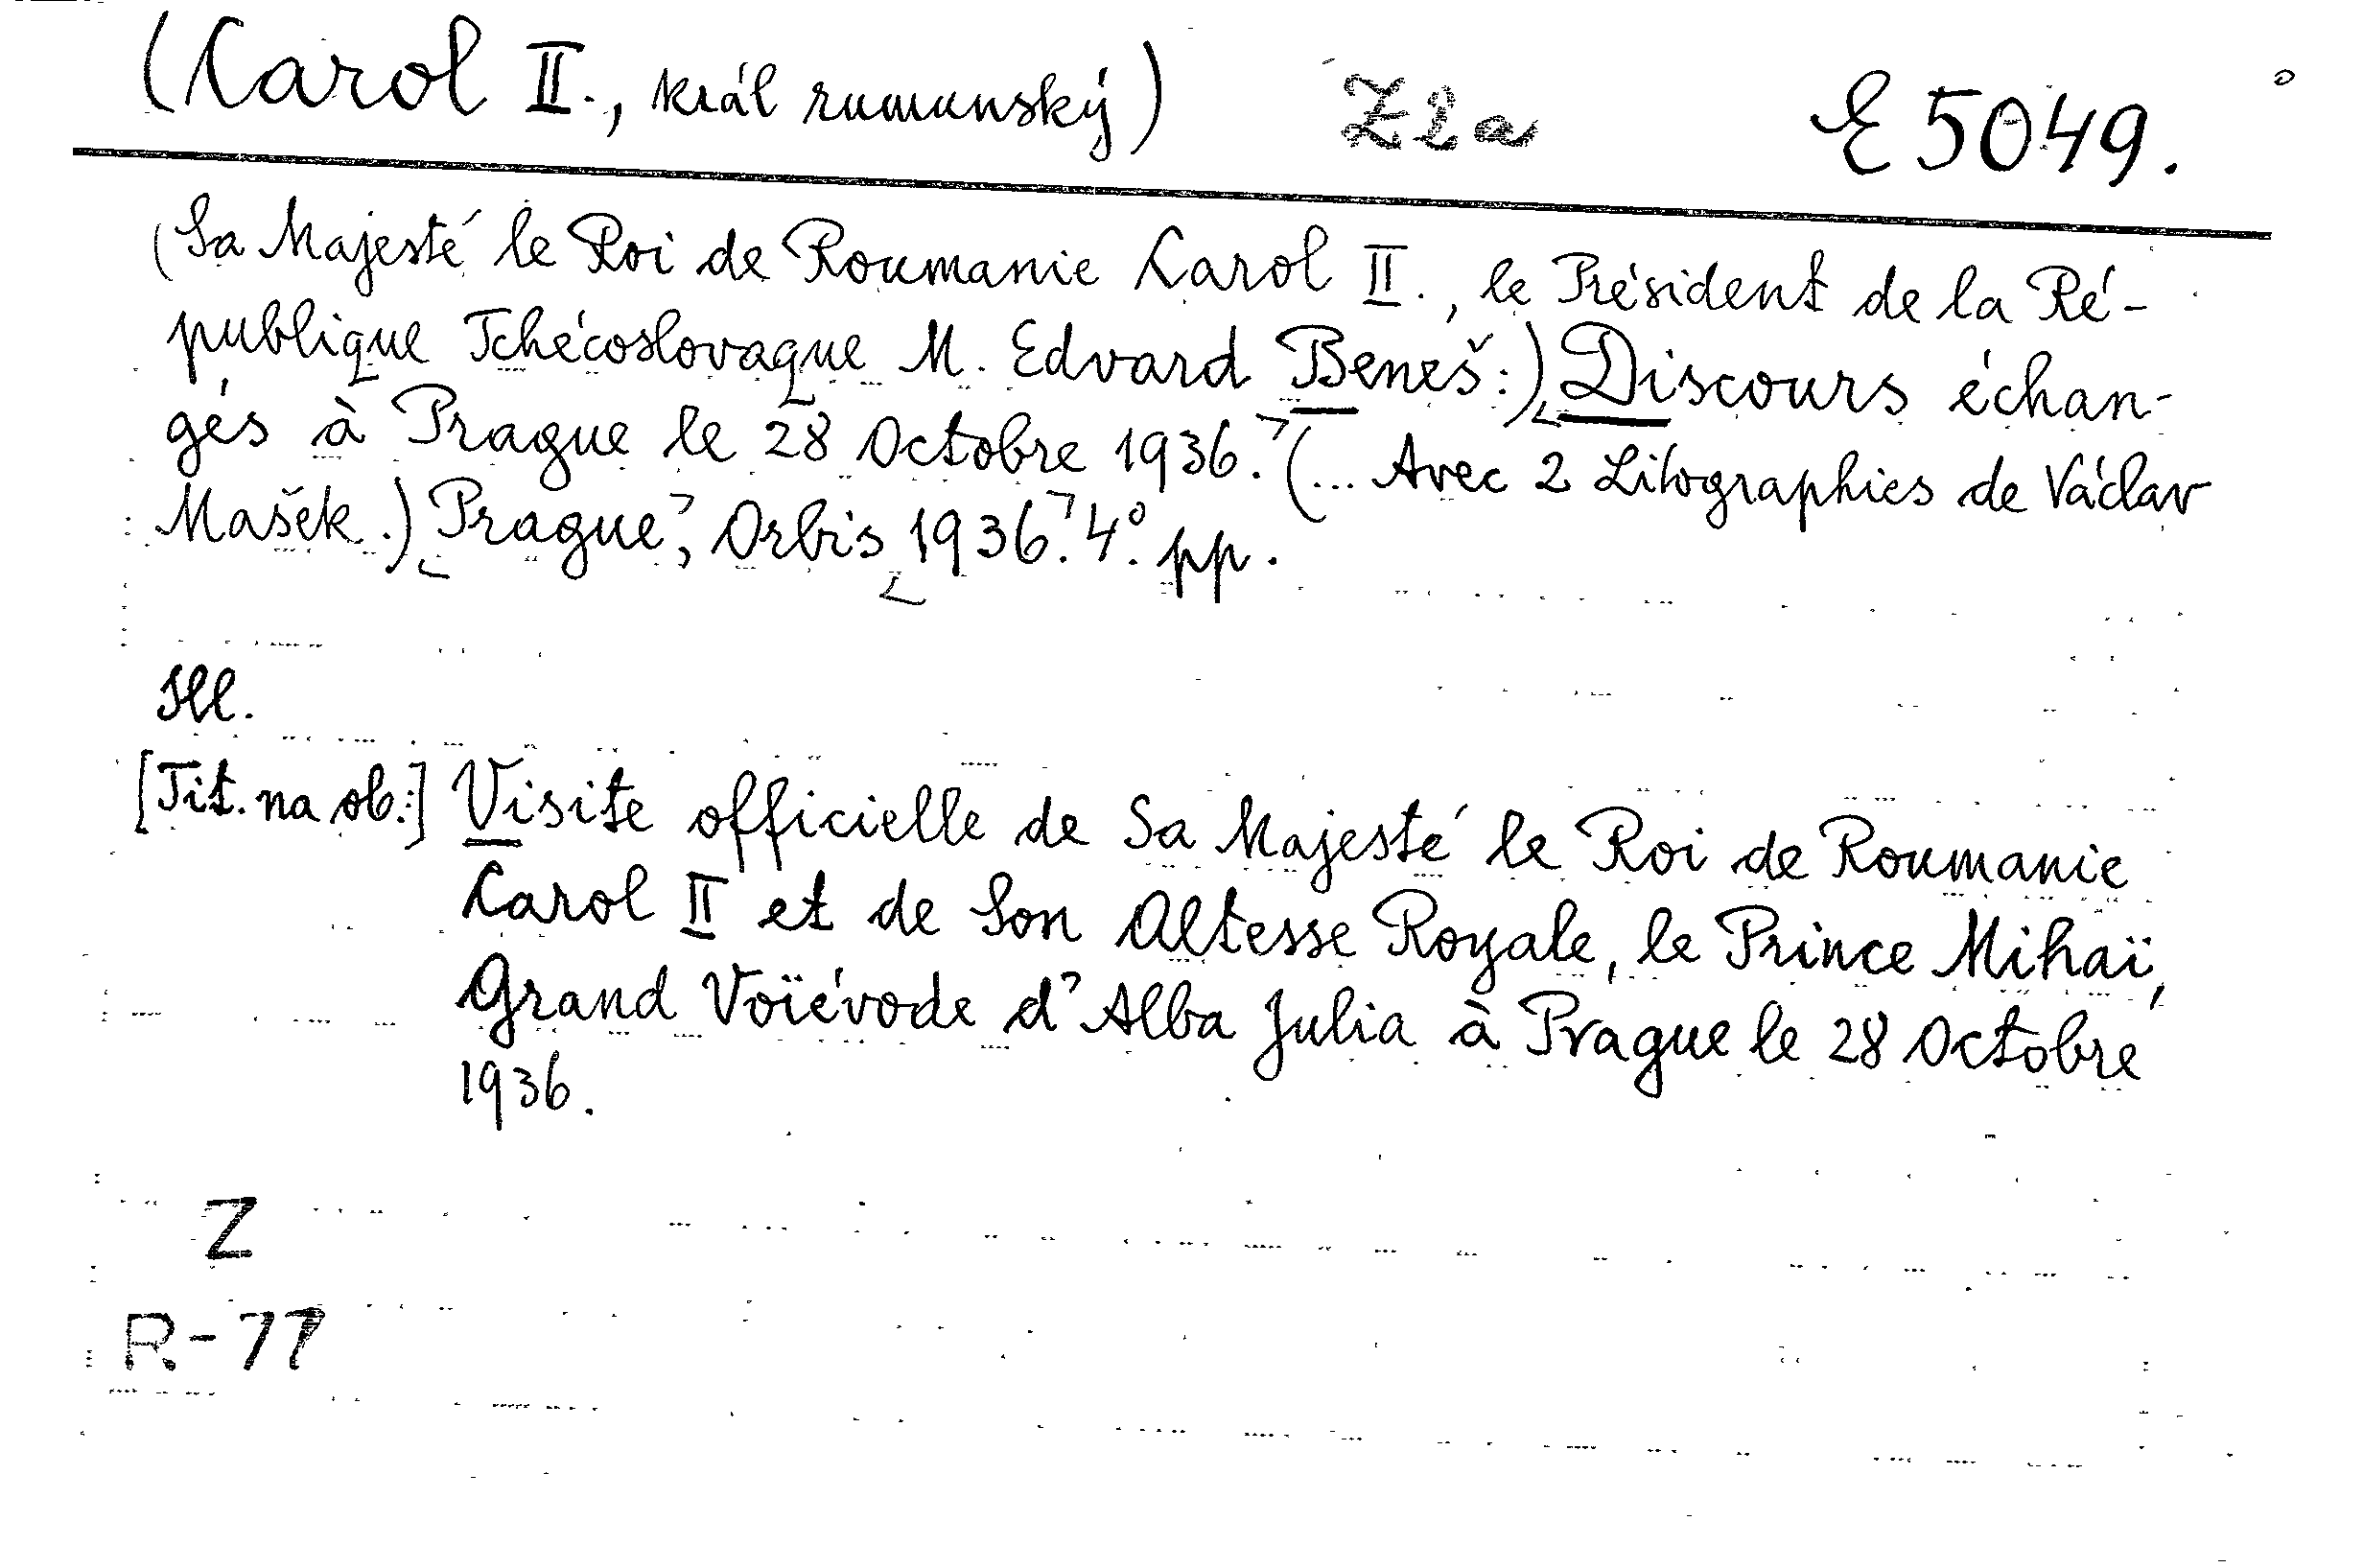 (Carol II., král rumunský) Z2a E 5049.
(Sa Majesté le Roi de Roumanie Carol II., le Président de la Ré-
publique Tchécoslovaque M. Edvard Beneš:) Discours échan-
gés à Prague le 28 Octobre 1936. (... Avec 2 Litographies de Václav
Mašek.) Prague, Orbis 1936. 4°. pp.
Ill.
[Tit. na ob.:] Visite officielle de Sa Majesté le Roi de Roumanie
Carol II et de Son Altesse Royale, le Prince Mihaï,
Grand Voïévode d'Alba Julia à Prague le 28 Octobre
1936.
Z
R-77